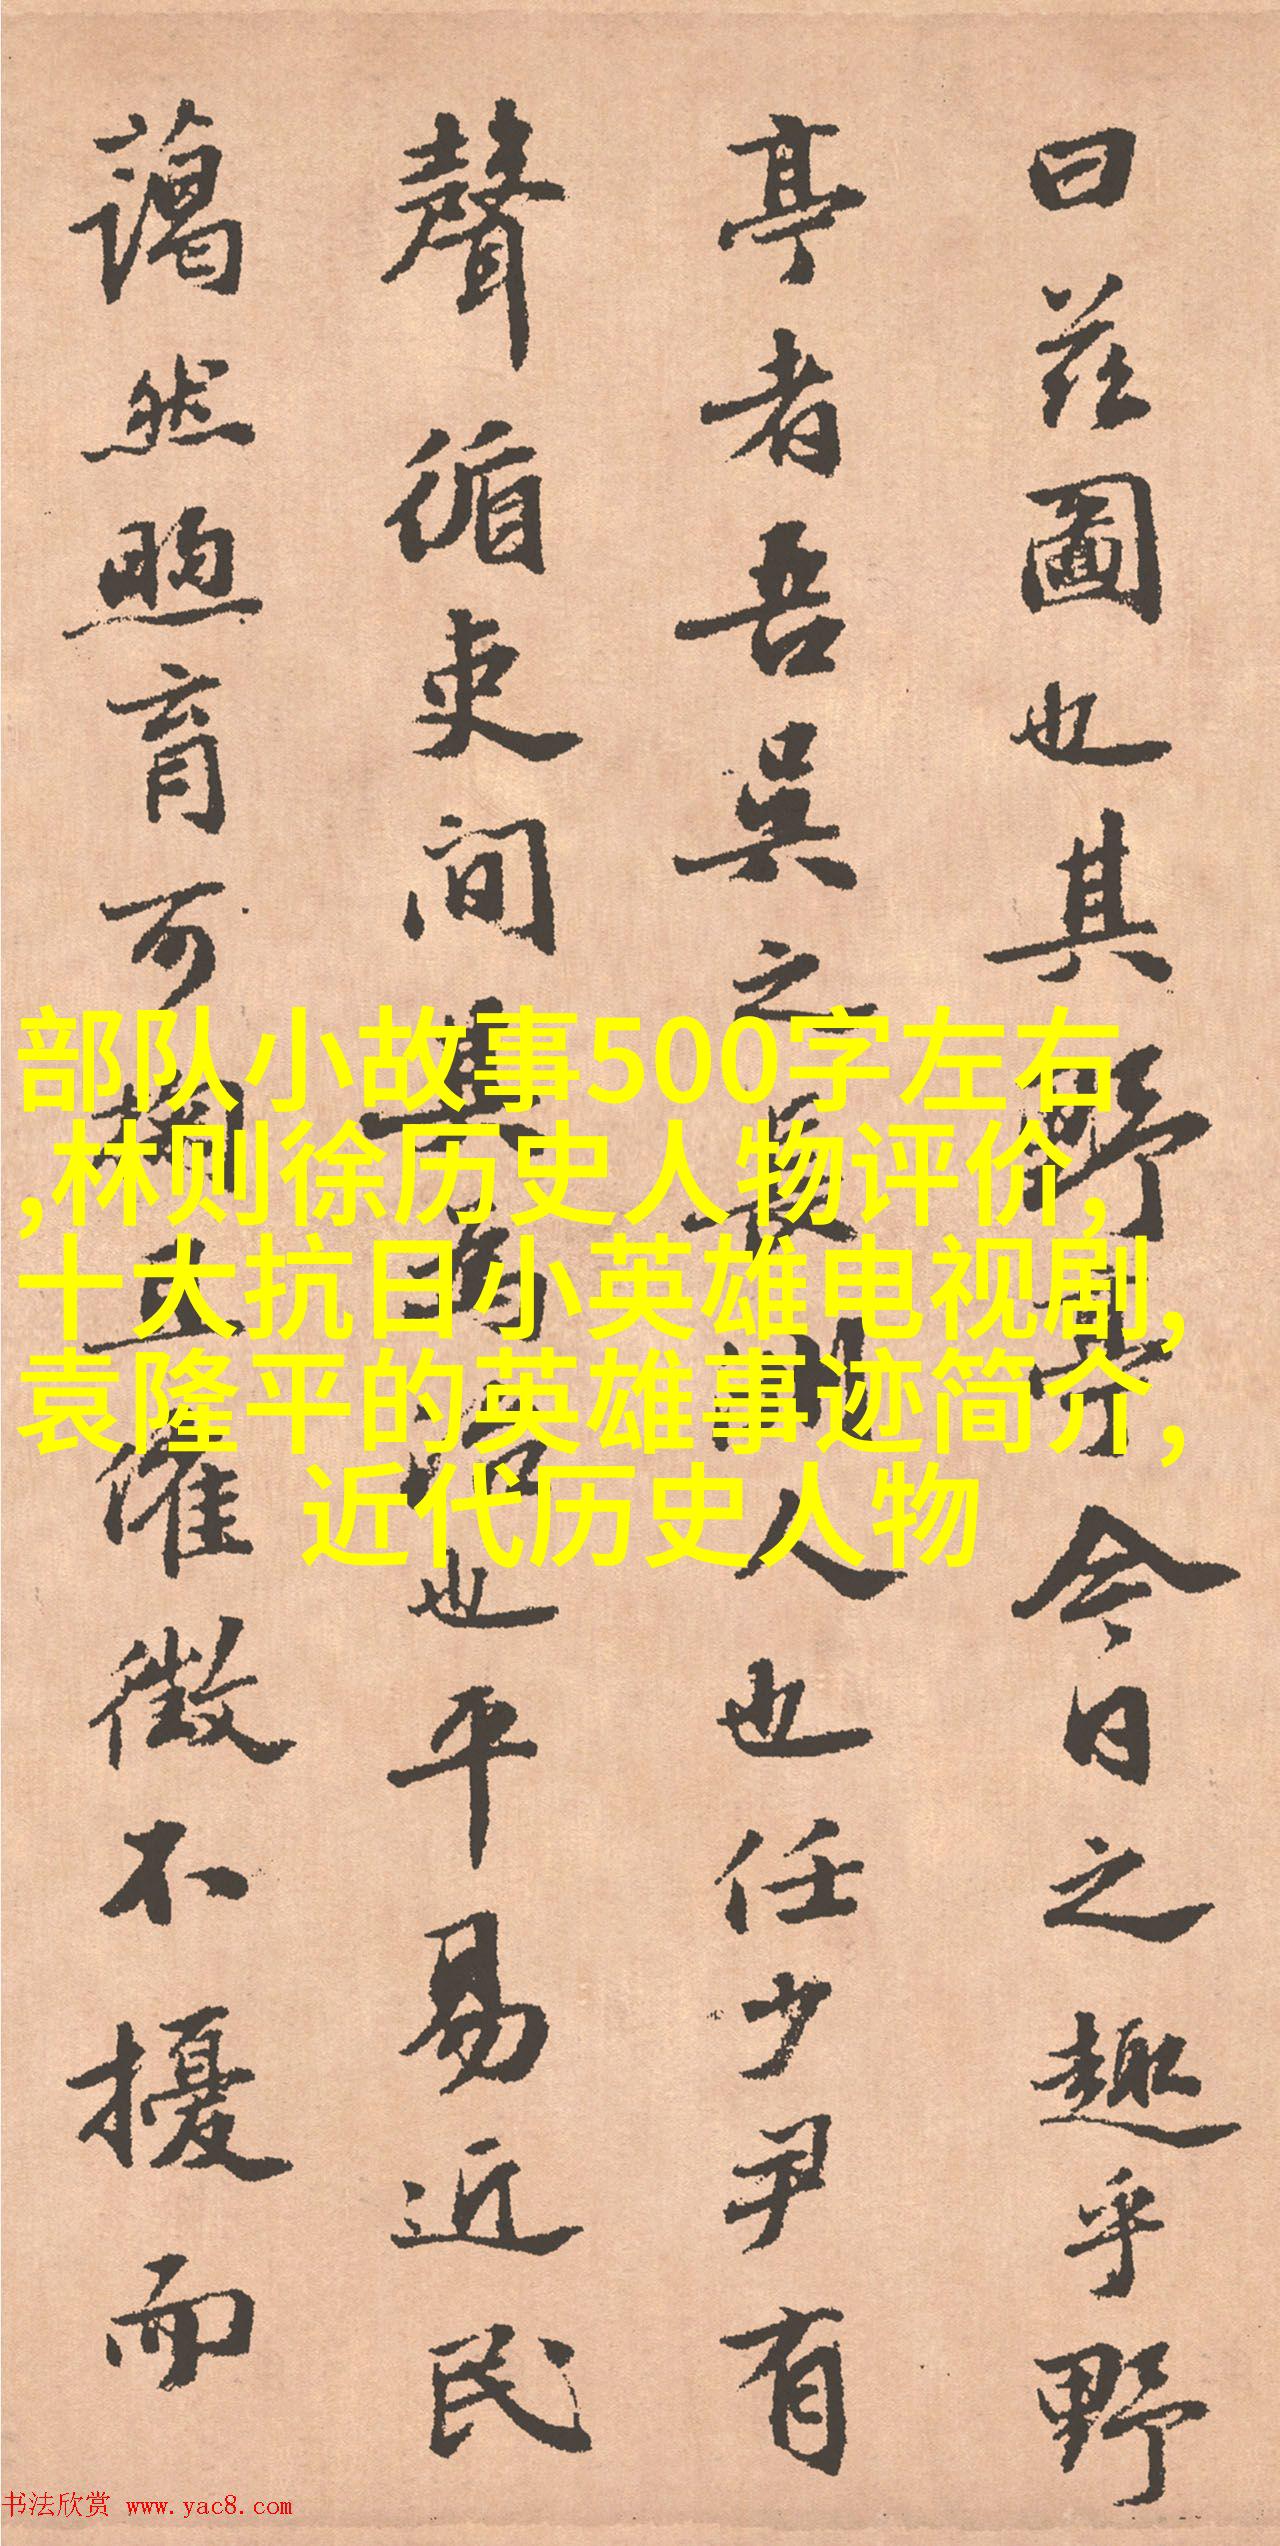 曰茲圖也其野亭今日之趣乎野
亭者吾吳之良則人也任少尹有
聲循吏间其為治也平易近民
藹然煦育可掬且催徵不擾而
部队小故事500字左右
,林则徐历史人物评价,
十大抗日小英雄电视剧,
袁隆平的英雄事迹简介,
近代历史人物
书法欣赏 www.yac8.com